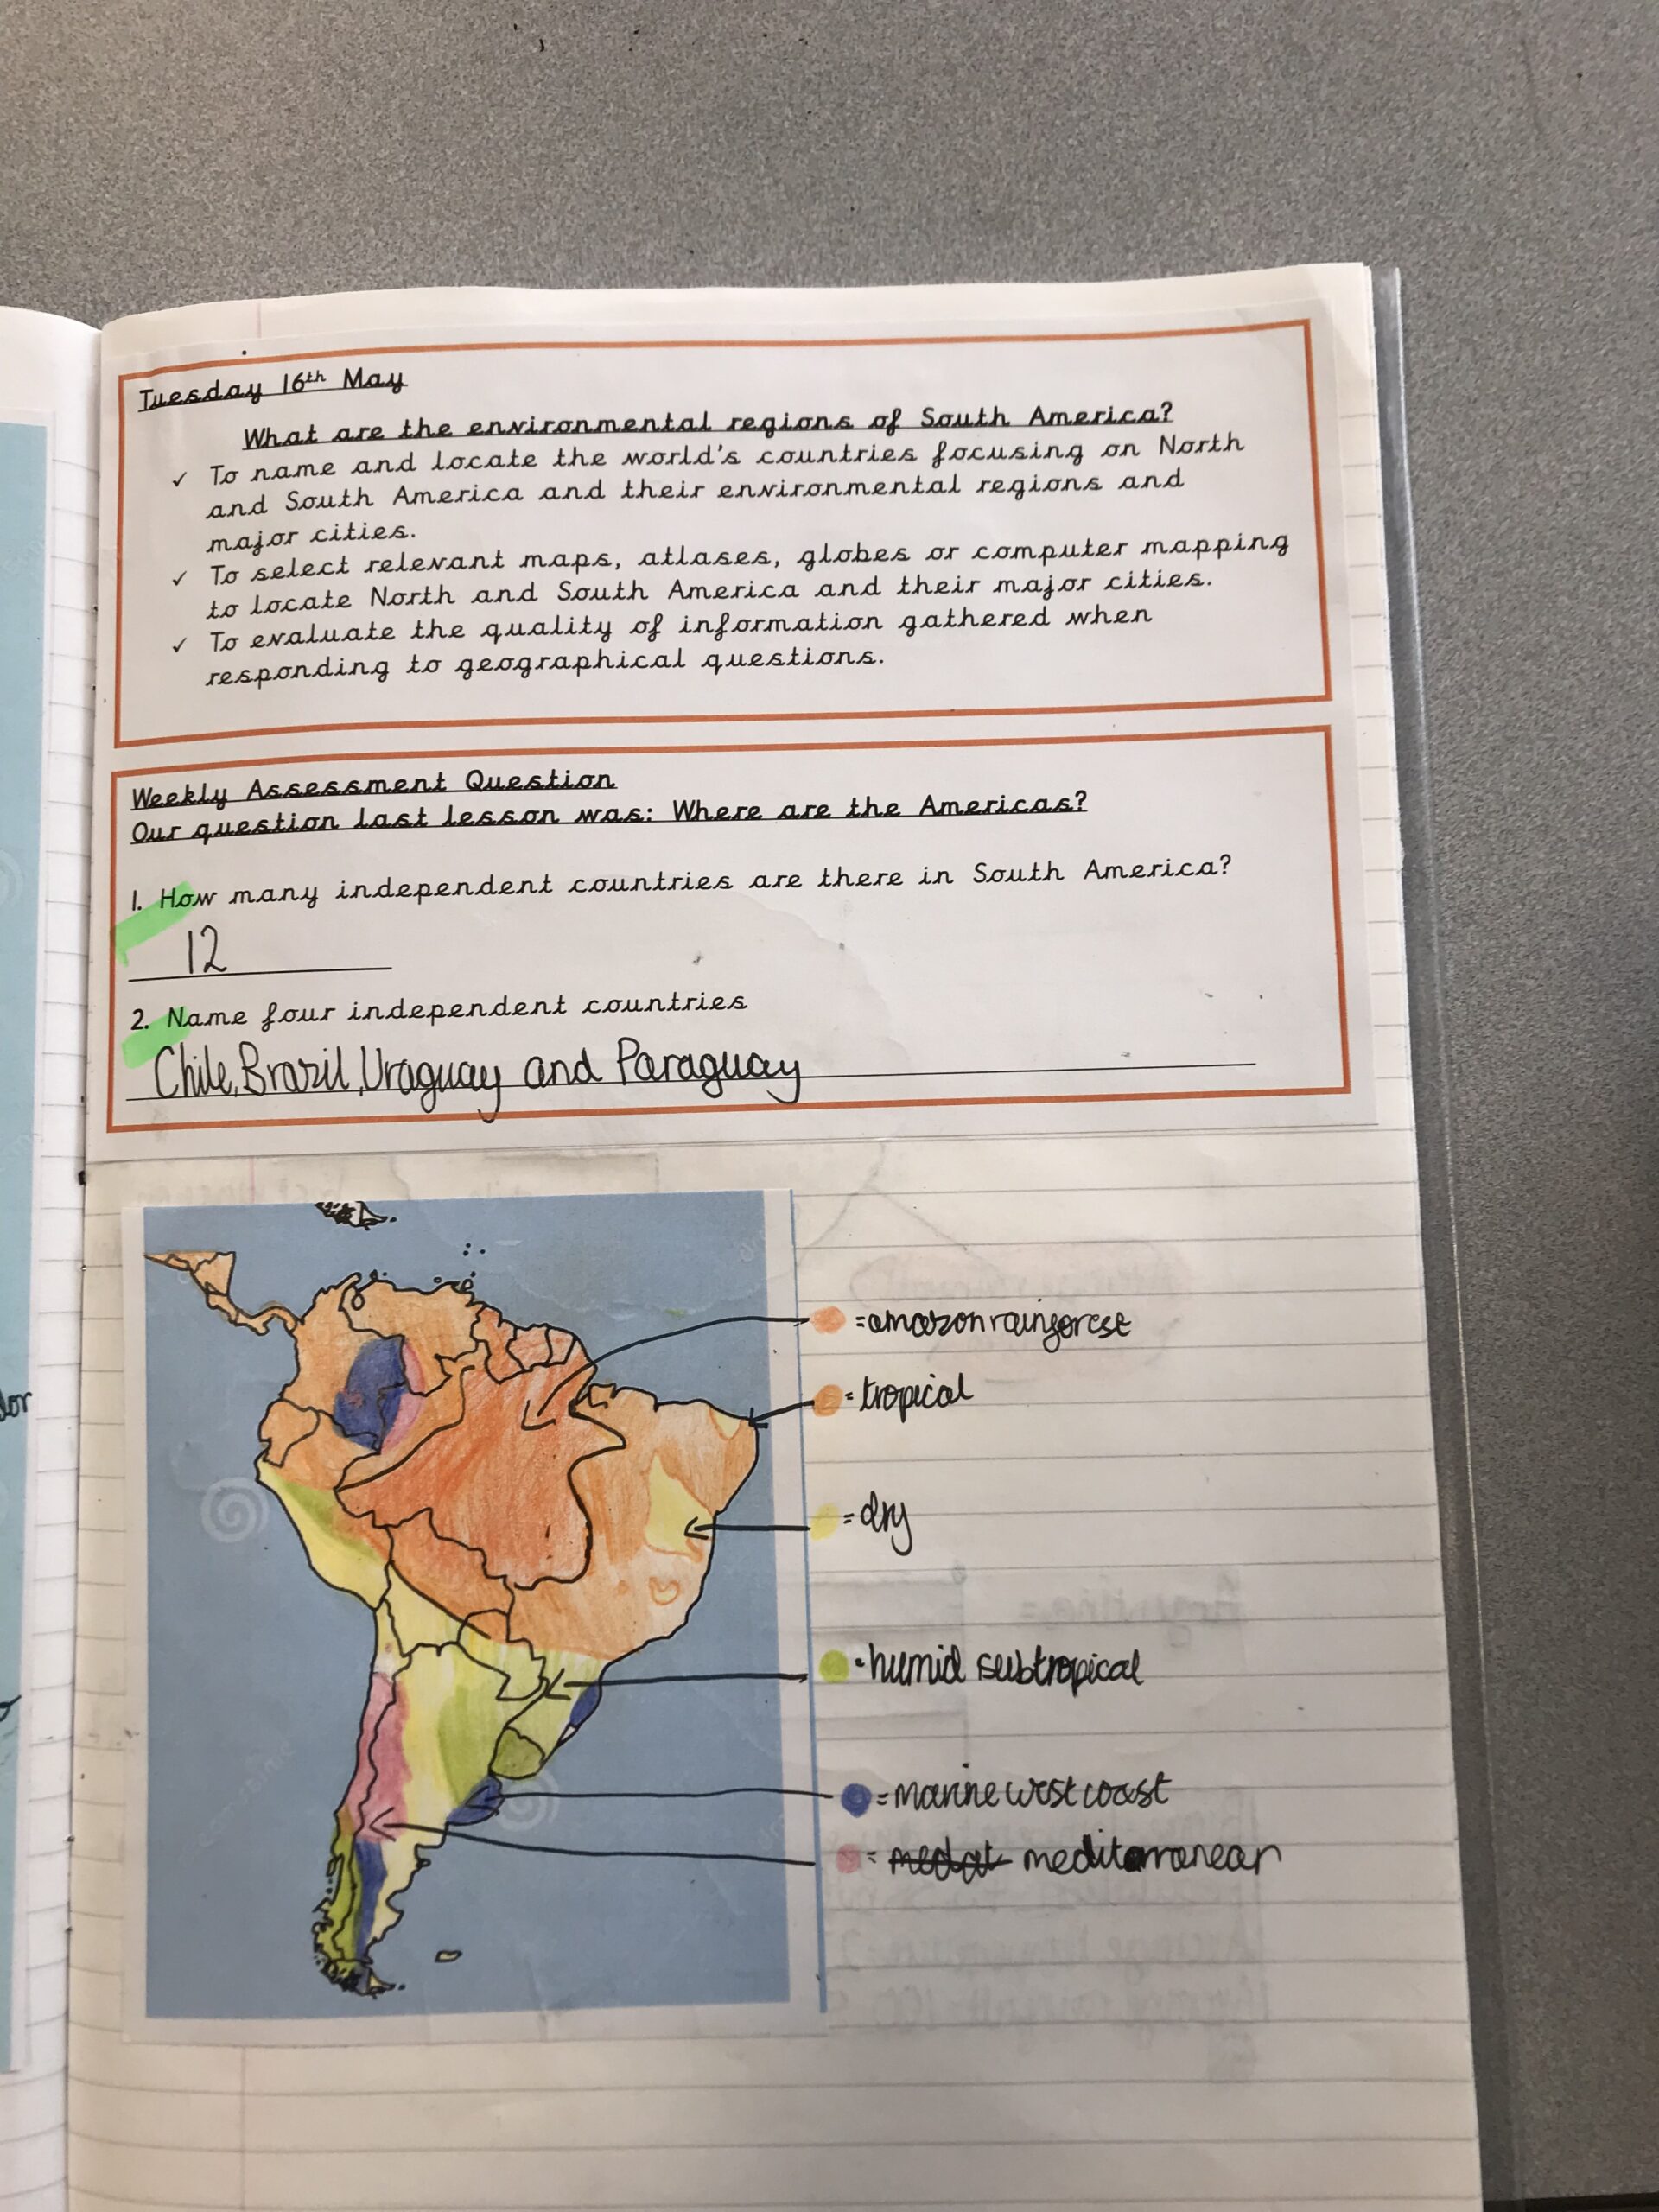 Tuesday 16th May
What are the environmental regions of South America?
✓ To name and locate the world's countries focusing on North
and South America and their environmental regions and
major cities.
✓ To select relevant maps, atlases, globes or computer mapping
to locate North and South America and their major cities.
✓ To evaluate the quality of information gathered when
responding to geographical questions.
Weekly Assessment Question
Our question last lesson was: Where are the Americas?
1. How many independent countries are there in South America?
12
2. Name four independent countries
Chile, Brazil, Uraguay and Paraguay
= amazon rainforest
= tropical
= dry
= humid subtropical
= marine west coast
= mediterranean